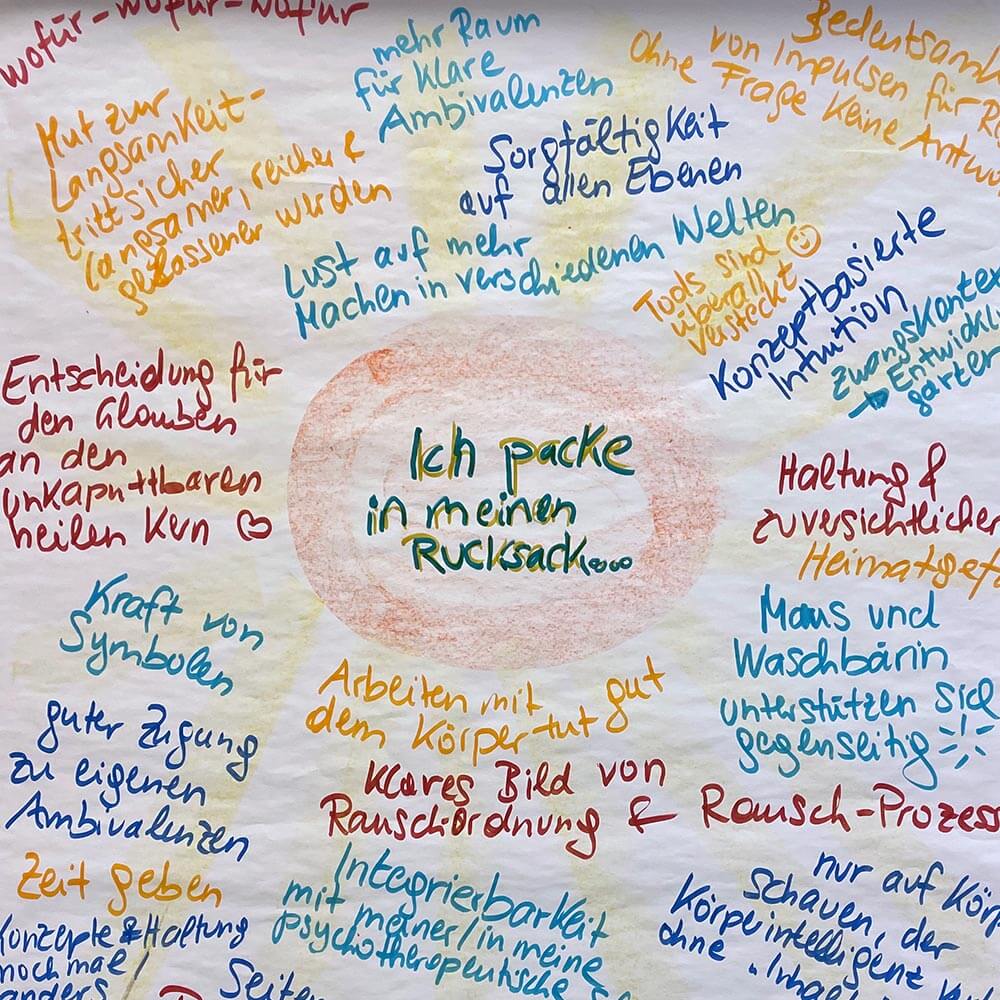 wofür-wofür-wofür
mehr Raum
für klare
Ambivalenzen
Bedeutsamk
von Impulsen für R
Ohne Frage keine Antwo
Mut zur
Langsamkeit-
trittsicher
langsamer, reicher &
gelassener werden
Sorgfältigkeit
auf allen Ebenen
Lust auf mehr
Machen in verschiedenen Welten
Tools sind
überall
versteckt
Konzeptbasierte
Intuition
Zwangskonte
→ Entwicklu
garten
Entscheidung für
den Glauben
an den
unkaputtbaren
heilen Kern
Ich packe
in meinen
Rucksack....
Haltung &
zuversichtlicher
Heimatgef
Kraft von
Symbolen
Maus und
Waschbärin
unterstützen sich
gegenseitig
Arbeiten mit
dem Körper tut gut
guter Zugung
zu eigenen
Ambivalenzen
klares Bild von
Rauschordnung & Rausch-Prozess
Zeit geben
Konzepte & Haltung
nochmal
anders
Integrierbarkeit
mit meiner/in meine
psychotherapeutische
nur auf Körp
Schauen, der
Körperintelligenz
ohne "Inhal
Seiten